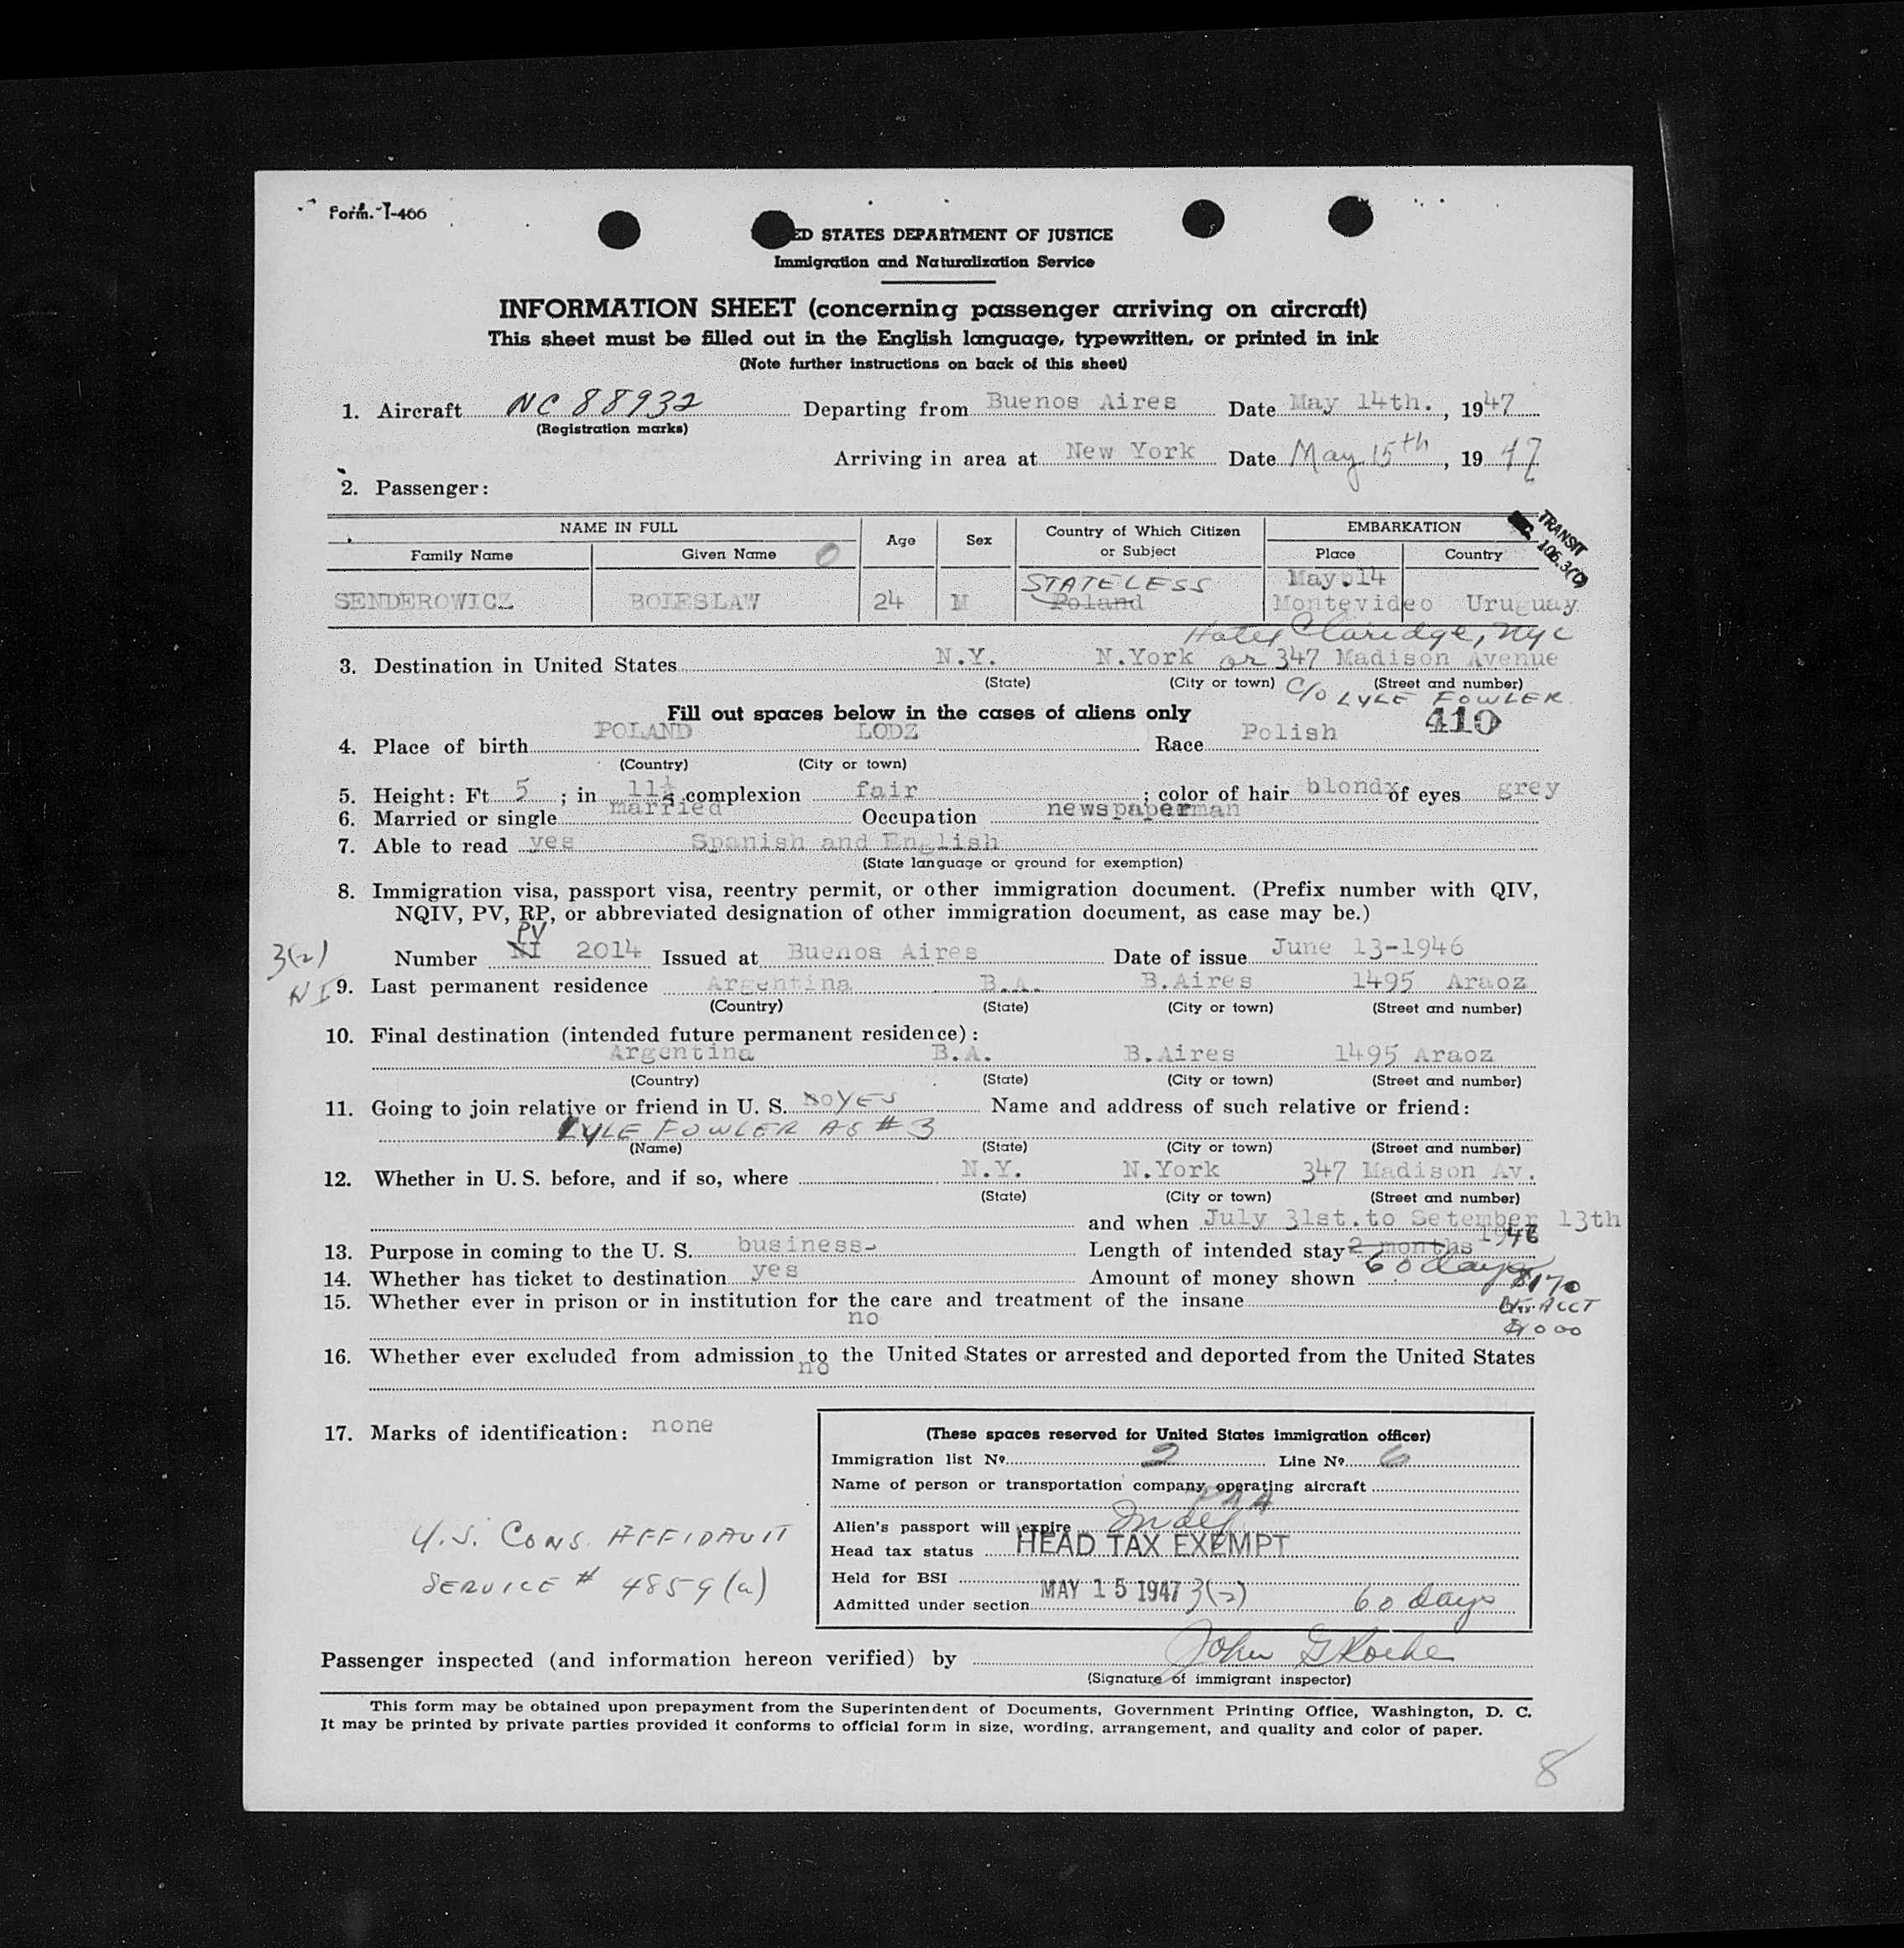 Form I-466
ED STATES DEPARTMENT OF JUSTICE
Immigration and Naturalization Service
INFORMATION SHEET (concerning passenger arriving on aircraft)
This sheet must be filled out in the English language, typewritten, or printed in ink
(Note further instructions on back of this sheet)
1. Aircraft NC 88932 Departing from Buenos Aires Date May 14th., 1947
(Registration marks)
Arriving in area at New York Date May 15th, 19 47
2. Passenger:
NAME IN FULL Age Sex Country of Which Citizen or Subject EMBARKATION
Family Name Given Name Place Country
TRANSIT
106.3(C)
STATELESS May.14
SENDEROWICZ BOLESLAW 24 M Poland Montevideo Uruguay
Hotel Claridge, NYC
3. Destination in United States N.Y. N.York or 347 Madison Avenue
(State) (City or town) (Street and number)
C/O LYLE FOWLER
Fill out spaces below in the cases of aliens only 410
4. Place of birth POLAND LODZ Race Polish
(Country) (City or town)
5. Height: Ft 5 ; in 11½ complexion fair ; color of hair blondx of eyes grey
6. Married or single married Occupation newspaperman
7. Able to read yes Spanish and English
(State language or ground for exemption)
8. Immigration visa, passport visa, reentry permit, or other immigration document. (Prefix number with QIV,
NQIV, PV, RP, or abbreviated designation of other immigration document, as case may be.)
PV
3(2) Number NI 2014 Issued at Buenos Aires Date of issue June 13-1946
NI 9. Last permanent residence Argentina B.A. B.Aires 1495 Araoz
(Country) (State) (City or town) (Street and number)
10. Final destination (intended future permanent residence):
Argentina B.A. B.Aires 1495 Araoz
(Country) (State) (City or town) (Street and number)
11. Going to join relative or friend in U. S. no YES Name and address of such relative or friend:
LYLE FOWLER AS # 3
(Name) (State) (City or town) (Street and number)
12. Whether in U. S. before, and if so, where N.Y. N.York 347 Madison Av.
(State) (City or town) (Street and number)
and when July 31st.to Setember 13th
1946
13. Purpose in coming to the U. S. business- Length of intended stay 2 months
60 days
14. Whether has ticket to destination yes Amount of money shown $170
15. Whether ever in prison or in institution for the care and treatment of the insane
ACCT
no
$1000
16. Whether ever excluded from admission to the United States or arrested and deported from the United States
no
17. Marks of identification: none
(These spaces reserved for United States immigration officer)
Immigration list No. 2 Line No. 6
Name of person or transportation company operating aircraft
PAA
Alien's passport will expire Indef
Head tax status HEAD TAX EXEMPT
Held for BSI
Admitted under section MAY 15 1947 3(2) 60 days
U.S. CONS. AFFIDAVIT
SERVICE # 4859(a)
Passenger inspected (and information hereon verified) by John G Roche
(Signature of immigrant inspector)
This form may be obtained upon prepayment from the Superintendent of Documents, Government Printing Office, Washington, D. C.
It may be printed by private parties provided it conforms to official form in size, wording, arrangement, and quality and color of paper.
8